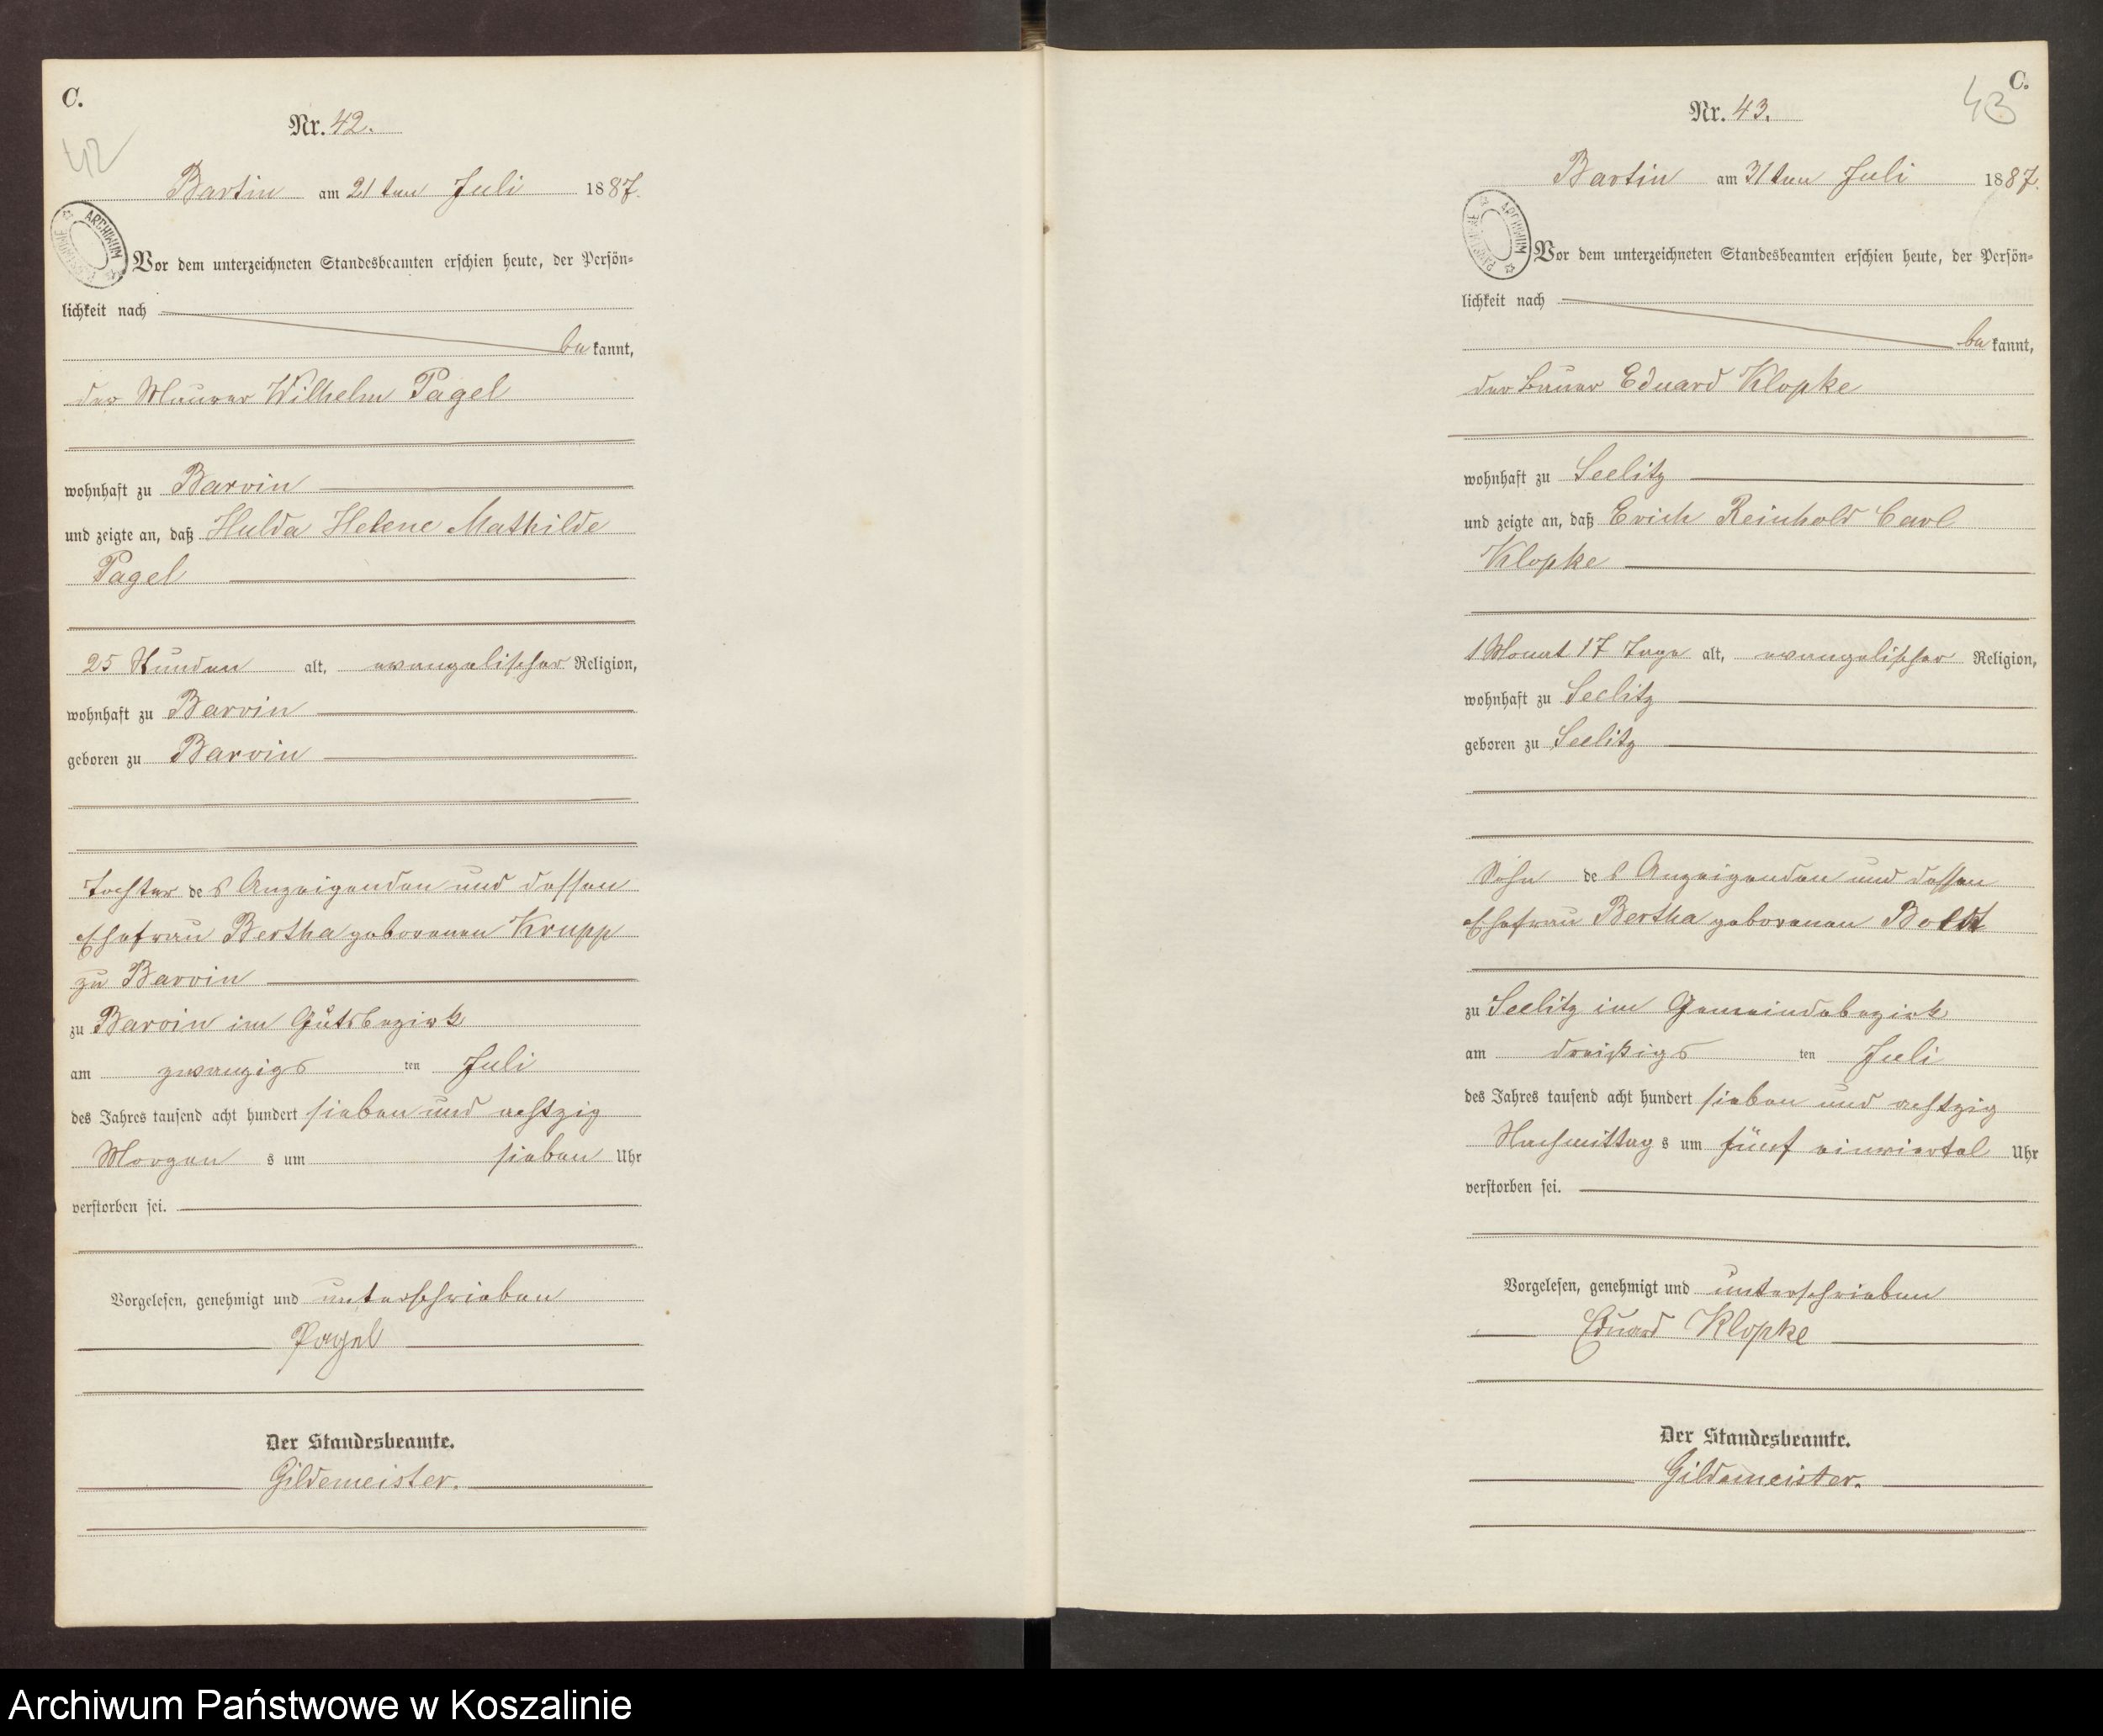 C.
42
Nr. 42.
Bartin am 21ten Juli 1887.
ARCHIWUM PAŃSTWOWE
Vor dem unterzeichneten Standesbeamten erschien heute, der Persön-
lichkeit nach
bekannt,
der Maurer Wilhelm Pagel
wohnhaft zu Barvin
und zeigte an, daß Hulda Helene Mathilde
Pagel
25 Stunden alt, evangelischer Religion,
wohnhaft zu Barvin
geboren zu Barvin
Tochter des Anzeigenden und dessen
Ehefrau Bertha geborenen Krupp
zu Barvin
zu Barvin im Gutsbezirk
am zwanzigsten Juli
des Jahres tausend acht hundert sieben und achtzig
Morgens um sieben Uhr
verstorben sei.
Vorgelesen, genehmigt und unterschrieben
Pagel
Der Standesbeamte.
Gildemeister.
C.
43
Nr. 43.
Bartin am 31ten Juli 1887.
ARCHIWUM PAŃSTWOWE
Vor dem unterzeichneten Standesbeamten erschien heute, der Persön-
lichkeit nach
bekannt,
der Bauer Eduard Klopke
wohnhaft zu Seelitz
und zeigte an, daß Erich Reinhold Carl
Klopke
1 Monat 17 Tage alt, evangelischer Religion,
wohnhaft zu Seelitz
geboren zu Seelitz
Sohn des Anzeigenden und dessen
Ehefrau Bertha geborenen Boldt
zu Seelitz im Gemeindebezirk
am dreißigsten Juli
des Jahres tausend acht hundert sieben und achtzig
Nachmittags um fünf einviertel Uhr
verstorben sei.
Vorgelesen, genehmigt und unterschrieben
Eduard Klopke
Der Standesbeamte.
Gildemeister.
Archiwum Państwowe w Koszalinie